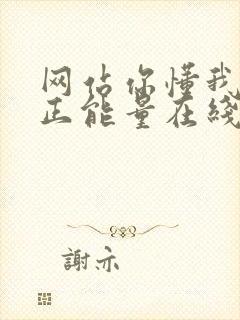 网站你懂我
正能量在线
謝亦